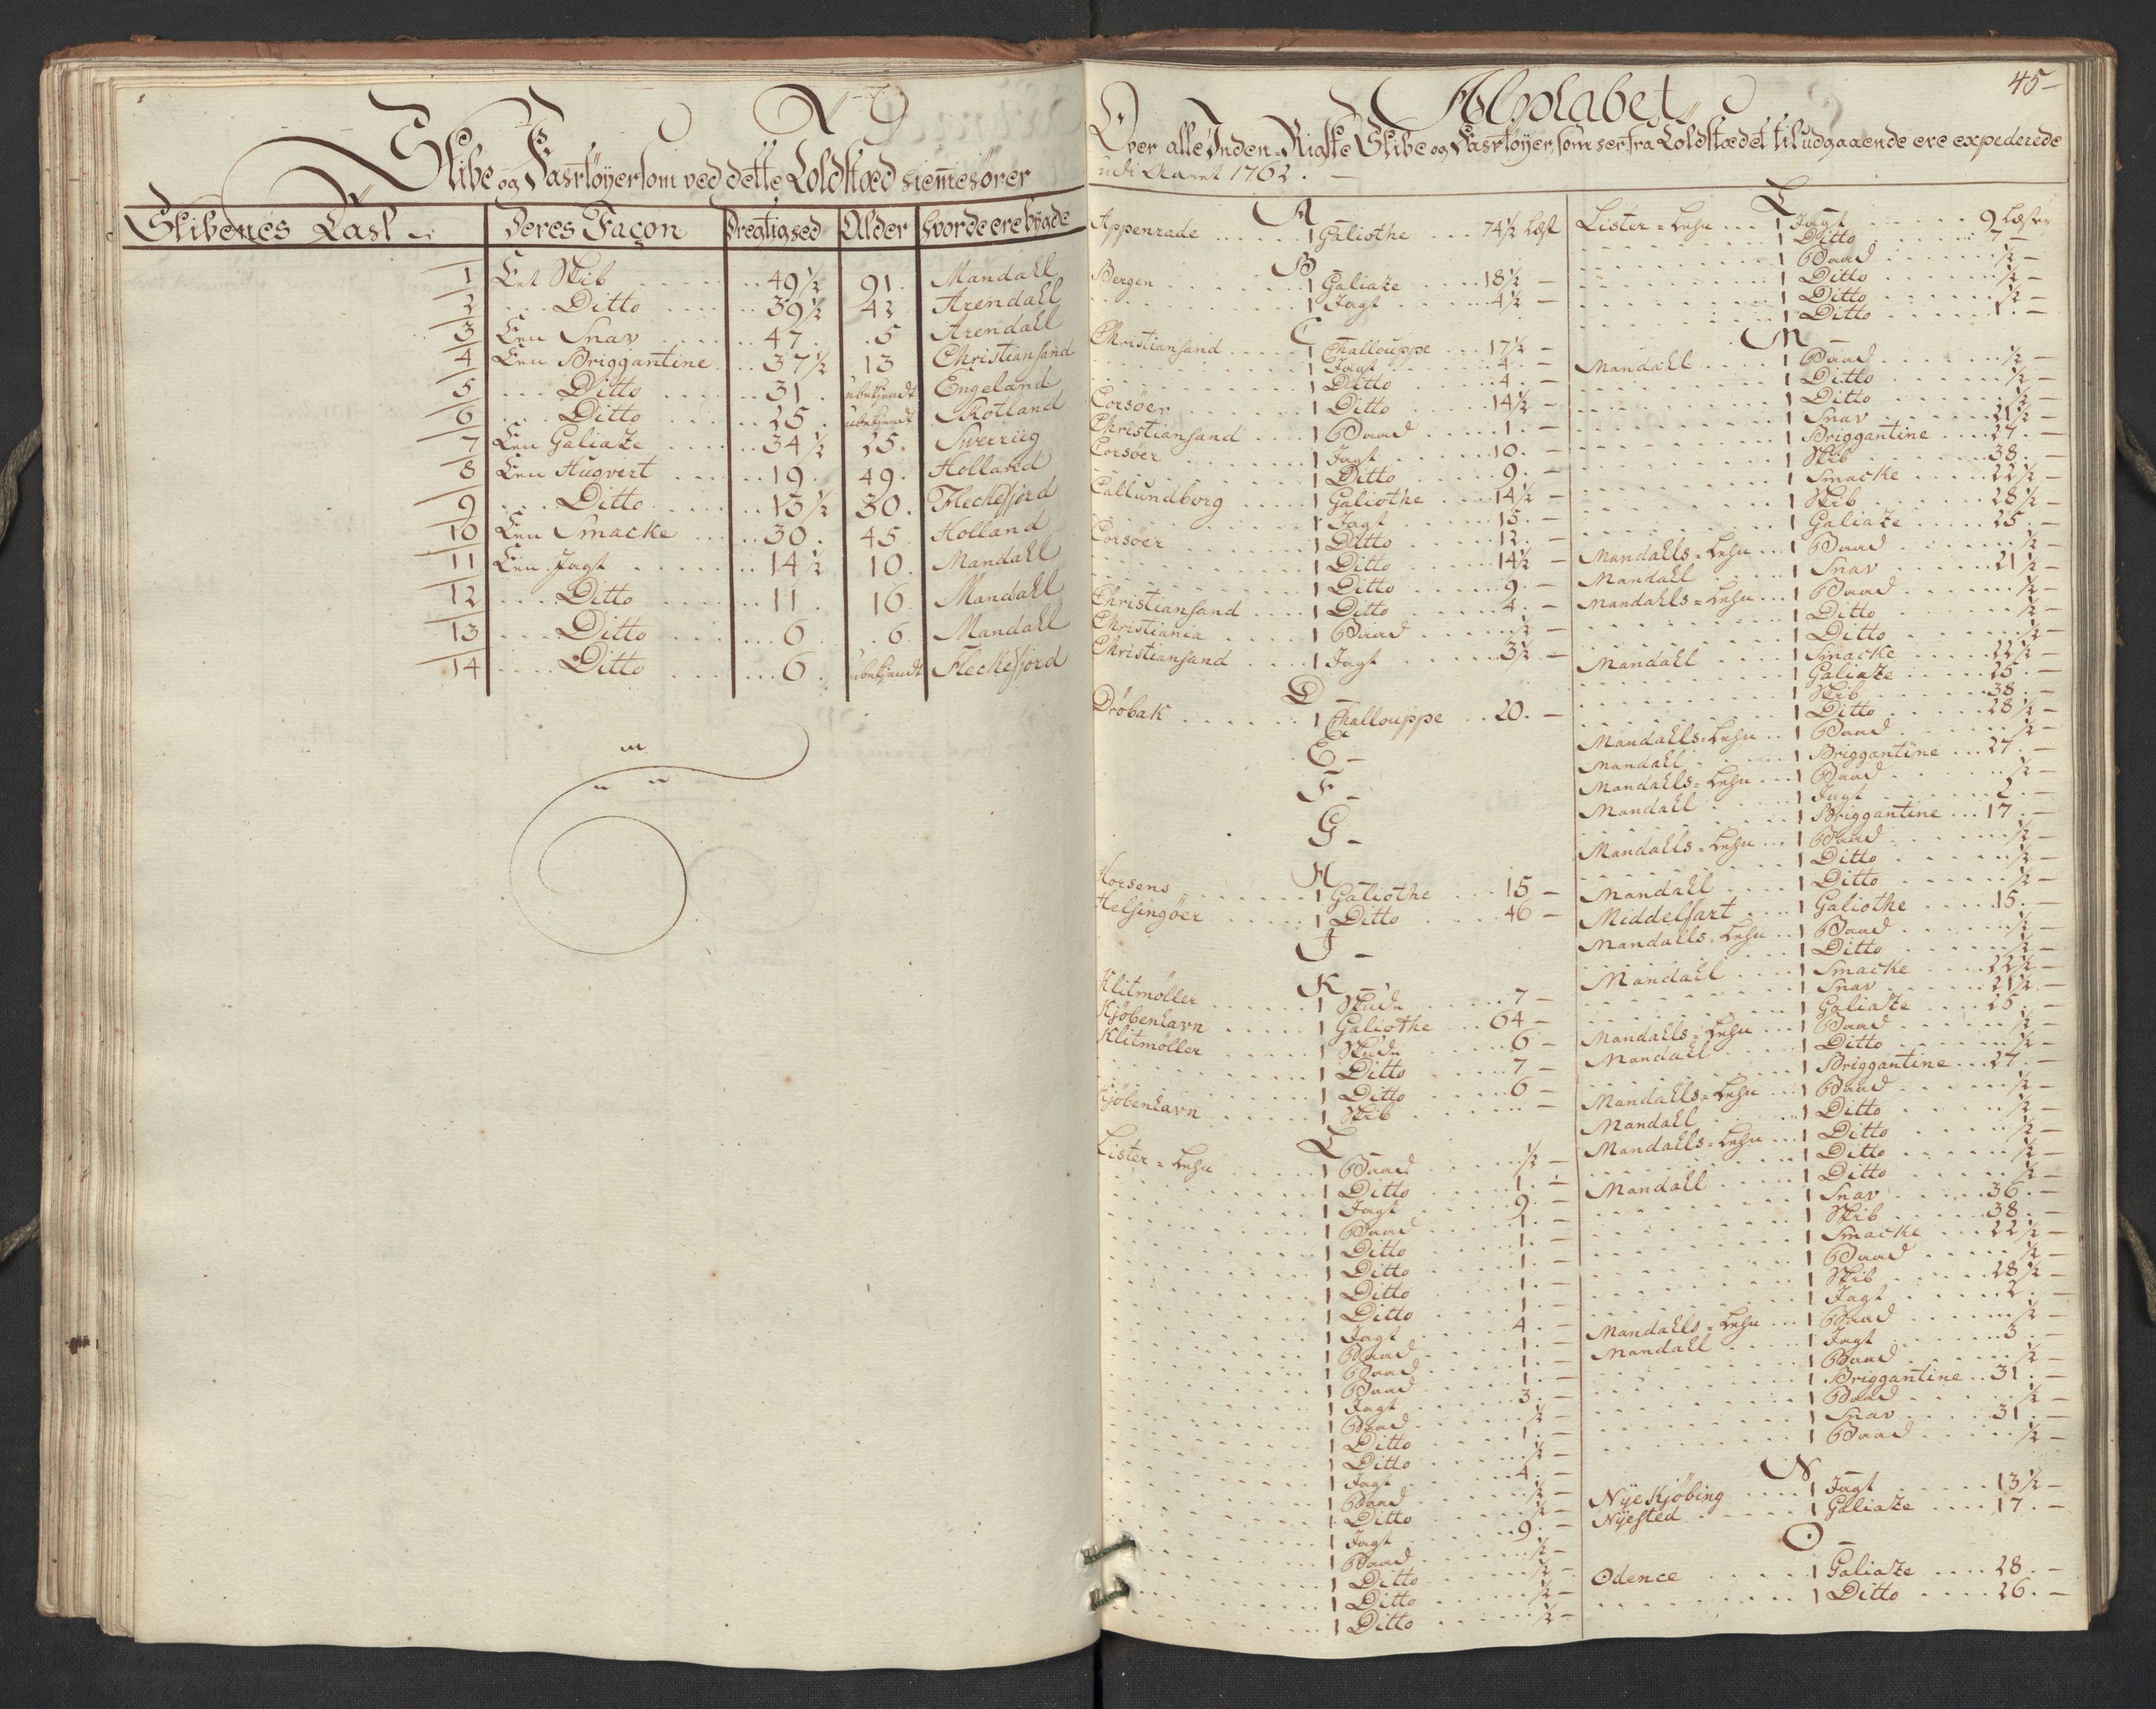 Skibe og Fartøyer som ved dette Toldstæd hiemehører
Skibenes Tall
Deres Façon
Dregtighed
Alder
hvor de ere bygde
1 Eet Skib 49½ 91. Mandahl
2 Ditto 39½ 42 Arendahl
3 Een Snav 47. 5 Arendahl
4 Een Briggantine 37½ 13 Christiansand
5 Ditto 31. ubekjendt Engeland
6 Ditto 25. ubekjendt Skotland
7 Een Galiatze 34½ 25. Sverrüg
8 Een Huqvert 19. 49. Holland
9 Ditto 13½ 30. Fleckefjord
10 Een Smacke 30. 45 Holland
11 Een Jagt 14½ 10. Mandahl
12 Ditto 11. 16. Mandahl
13 Ditto 6 6. Mandahl
14 Ditto 6. ubekjendt Fleckefjord
45
Alphabet
Over alle Inden-Rigske Skibe og Fartøyer, som her fra Toldstædet til udgaaende ere expederede
udi Aaret 1762.
A
Appenrade 1 Galiothe 74½ Læst
B
Bergen 1 Galiatze 18½ –
1 Jagt 4½ –
C
Christiansand 1 Challouppe 17½ –
1 Jagt 4. –
1 Ditto 4. –
Corsöer 1 Ditto 14½ –
Christiansand 1 Baad 1. –
Corsöer 1 Jagt 10. –
1 Ditto 9. –
Callundborg 1 Galiothe 14½ –
1 Jagt 15. –
Corsöer 1 Ditto 12. –
1 Ditto 14½ –
1 Ditto 9. –
Christiansand 1 Ditto 4. –
Christiania 1 Baad ½ –
Christiansand 1 Jagt 3½ –
D –
Dröbak 1 Challouppe 20. –
E –
F –
G –
H
Horsens 1 Galiothe 15 –
Helsingöer 1 Ditto 46 –
J –
K –
Klitmöller 1 Skude 7 –
Kjöbenhavn 1 Galiothe 64 –
Klitmöller 1 Skude 6 –
1 Ditto 7 –
1 Ditto 6 –
Kjöbenhavn 1 Skib –
L
Lister = Lehn 1 Baad ½ –
1 Ditto 1. –
1 Jagt 9. –
1 Baad 1. –
1 Ditto 1. –
1 Ditto 1. –
1 Ditto 1. –
1 Ditto 1. –
1 Jagt 4. –
1 Baad 1. –
1 Baad 1. –
1 Baad 1. –
1 Jagt 3. –
1 Baad ½ –
1 Ditto 1. –
1 Ditto ½ –
1 Jagt 4. –
1 Baad ½ –
1 Ditto ½ –
1 Jagt 9. –
1 Baad ½ –
1 Ditto ½ –
1 Ditto ½ –
1 Ditto ½ –
L
Lister = Lehn 1 Jagt 9 Læster
1 Ditto 7 –
1 Baad ½ –
1 Ditto ½ –
1 Ditto ½ –
1 Ditto 1. –
M –
Mandahl 1 Baad ½ –
1 Ditto ½ –
1 Ditto ½ –
1 Snav 21½ –
1 Briggantine 27. –
1 Skib 38. –
1 Smacke 22½ –
1 Skib 28½ –
1 Galiatze 25. –
Mandahls = Lehn 1 Baad ½ –
Mandahl 1 Snav 21½ –
Mandahls = Lehn 1 Baad ½ –
1 Ditto ½ –
1 Ditto ½ –
Mandahl 1 Smacke 22½ –
1 Galiatze 25. –
1 Skib 38. –
1 Ditto 28½ –
Mandahls = Lehn 1 Baad ½ –
Mandahl 1 Briggantine 27. –
Mandahls = Lehn 1 Baad ½ –
Mandahl 1 Jagt 2. –
1 Briggantine 17. –
Mandahls = Lehn 1 Baad ½ –
1 Ditto ½ –
Mandahl 1 Ditto ½ –
Middelfart 1 Galiothe 15. –
Mandahls = Lehn 1 Baad ½ –
1 Ditto ½ –
Mandahl 1 Smacke 22½ –
1 Snav 21½ –
1 Galiatze 25. –
Mandahls = Lehn 1 Baad ½ –
Mandahl 1 Ditto ½ –
1 Briggantine 27. –
Mandahls = Lehn 1 Baad ½ –
Mandahl 1 Ditto ½ –
Mandahls = Lehn 1 Ditto ½ –
1 Ditto ½ –
Mandahl 1 Ditto ½ –
1 Snav 36. –
1 Skib 38. –
1 Smacke 22½ –
1 Baad ½ –
1 Skib 28½ –
1 Jagt 2. –
Mandahls = Lehn 1 Baad ½ –
Mandahl 1 Jagt 3. –
1 Baad ½ –
1 Briggantine 31. –
1 Baad ½ –
1 Snav 31. –
1 Baad ½ –
N
Nÿe Kjöbing 1 Jagt 13½ –
Nÿested 1 Galiatze 17. –
O –
Odence 1 Galiatze 28. –
1 Ditto 26. –